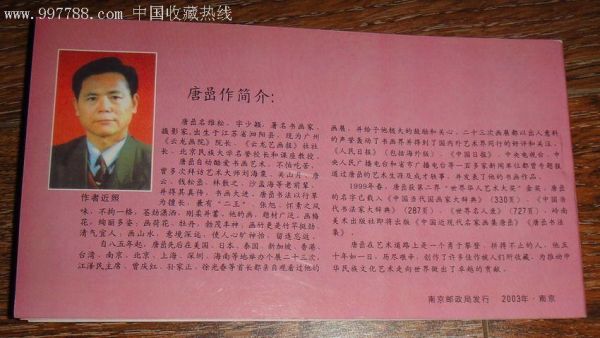 www.997788.com 中国收藏热线
唐嵒作简介:
唐嵒名维松,字少颖,著名书画家、
摄影家,出生于江苏省泗阳县,现为广州
《云龙画院》院长、《云龙艺画报》社社
长、北京民族大学名誉校长和课座教授。
唐嵒自幼酷爱书画艺术,不怕吃苦,
曾多次拜访艺术大师刘海粟、吴山月、唐
云、钱松喦、林散之、沙孟海等老前辈,
并得其真传,书画大进。唐嵒书法以行草
为擅长,兼有“二王”、张旭、怀素之风
味,不拘一格,苍劲潇洒,刚柔并蓄。他的画,题材广泛,画梅
花,绚丽多姿,画荷花、牡丹,勃茂丰神,画竹是竹竿挺劲,
清气宜人,画山水,意境深远,使人心旷神怡,留连忘返。
自八五年起,唐嵒先后在美国、日本、泰国、新加坡、香港、
台湾、南京、北京、上海、深圳、海南等地举办个展二十三次,
江泽民主席、曾庆红、孙家正、徐光春等首长都亲自观看过他的
作者近照
画展,并给予他极大的鼓励和关心。二十三次画展都以出人意料
的声誉轰动了书画界并得到了国内外艺术界同行的好评和关注。
《人民日报》(包括海外版)、《中国日报》、中央电视台、中
央人民广播电台和省市广播电台等一百多家新闻单位都曾专题报
道过唐嵒的艺术生涯及成才轶事,并发表了他的书画作品。
1999年春,唐嵒获第二界“世界华人艺术大奖”金奖,唐嵒
的名字已载入《中国当代国画家大辞典》(330页)、《中国书
法家大辞典》(287页)、《世界名人录》(727页),岭南
美术出版社即将出版《中国近现代名家画集唐嵒》《唐嵒书法
集》。
唐嵒在艺术道路上是一个勇于攀登、拼搏不止的人,他五
十年如一日,历尽艰辛,创作了许多佳作被人们所收藏,为推动中
华民族文化艺术走向世界做出了卓越的贡献。
南京邮政局发行 2003年·南京